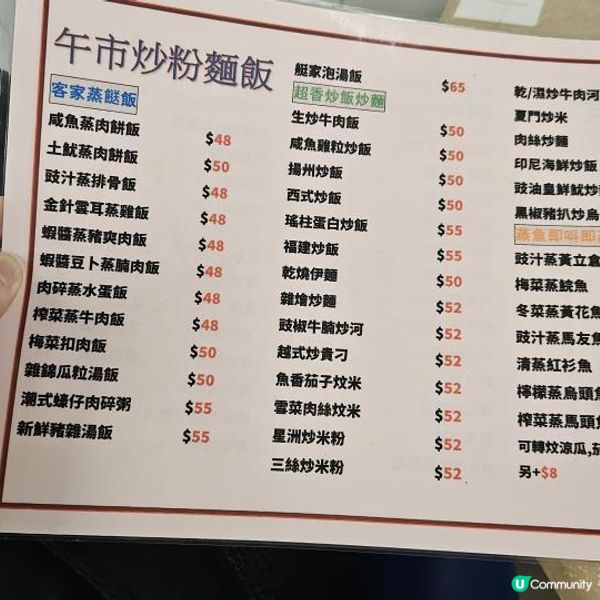 午市炒粉麵飯
客家蒸餸飯
咸魚蒸肉餅飯 $48
土魷蒸肉餅飯 $50
豉汁蒸排骨飯 $48
金針雲耳蒸雞飯 $48
蝦醬蒸豬爽肉飯 $48
蝦醬豆卜蒸腩肉飯 $48
肉碎蒸水蛋飯 $48
榨菜蒸牛肉飯 $48
梅菜扣肉飯 $50
雜錦瓜粒湯飯 $50
潮式蠔仔肉碎粥 $55
新鮮豬雜湯飯 $55
艇家泡湯飯 $65
超香炒飯炒麵
生炒牛肉飯 $50
咸魚雞粒炒飯 $50
揚州炒飯 $50
西式炒飯 $50
瑤柱蛋白炒飯 $55
福建炒飯 $55
乾燒伊麵 $50
雜燴炒麵 $52
豉椒牛腩炒河 $52
越式炒貴刁 $52
魚香茄子炆米 $52
雪菜肉絲炆米 $52
星洲炒米粉 $52
三絲炒米粉 $52
乾/濕炒牛肉河
夏門炒米
肉絲炒麵
印尼海鮮炒飯
豉油皇鮮魷炒
黑椒豬扒炒烏
蒸魚即叫即
豉汁蒸黃立倉
梅菜蒸鯇魚
冬菜蒸黃花魚
豉汁蒸馬友魚
清蒸紅衫魚
檸檬蒸烏頭魚
榨菜蒸馬頭魚
可轉炆涼瓜,茄
另+$8
U Community